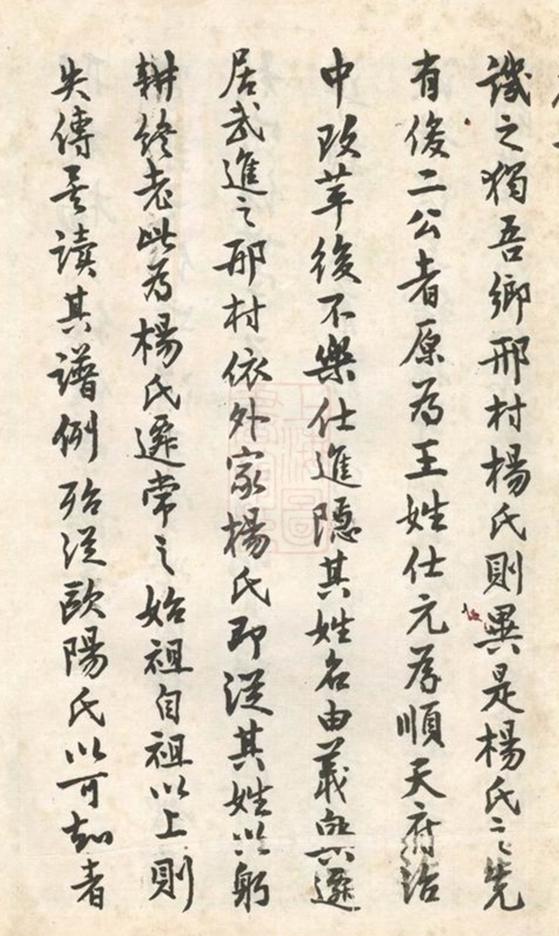 譏之獨吾鄉邢村楊氏則異是楊氏之先
有俊二公者原為王姓仕元為順天府治
中改革後不樂仕進隱其姓名由義興遷
居武進之邢村依外家楊氏即從其姓以躬
耕終老此為楊氏遷常之始祖自祖以上則
失傳矣讀其譜例殆從歐陽氏以可知者